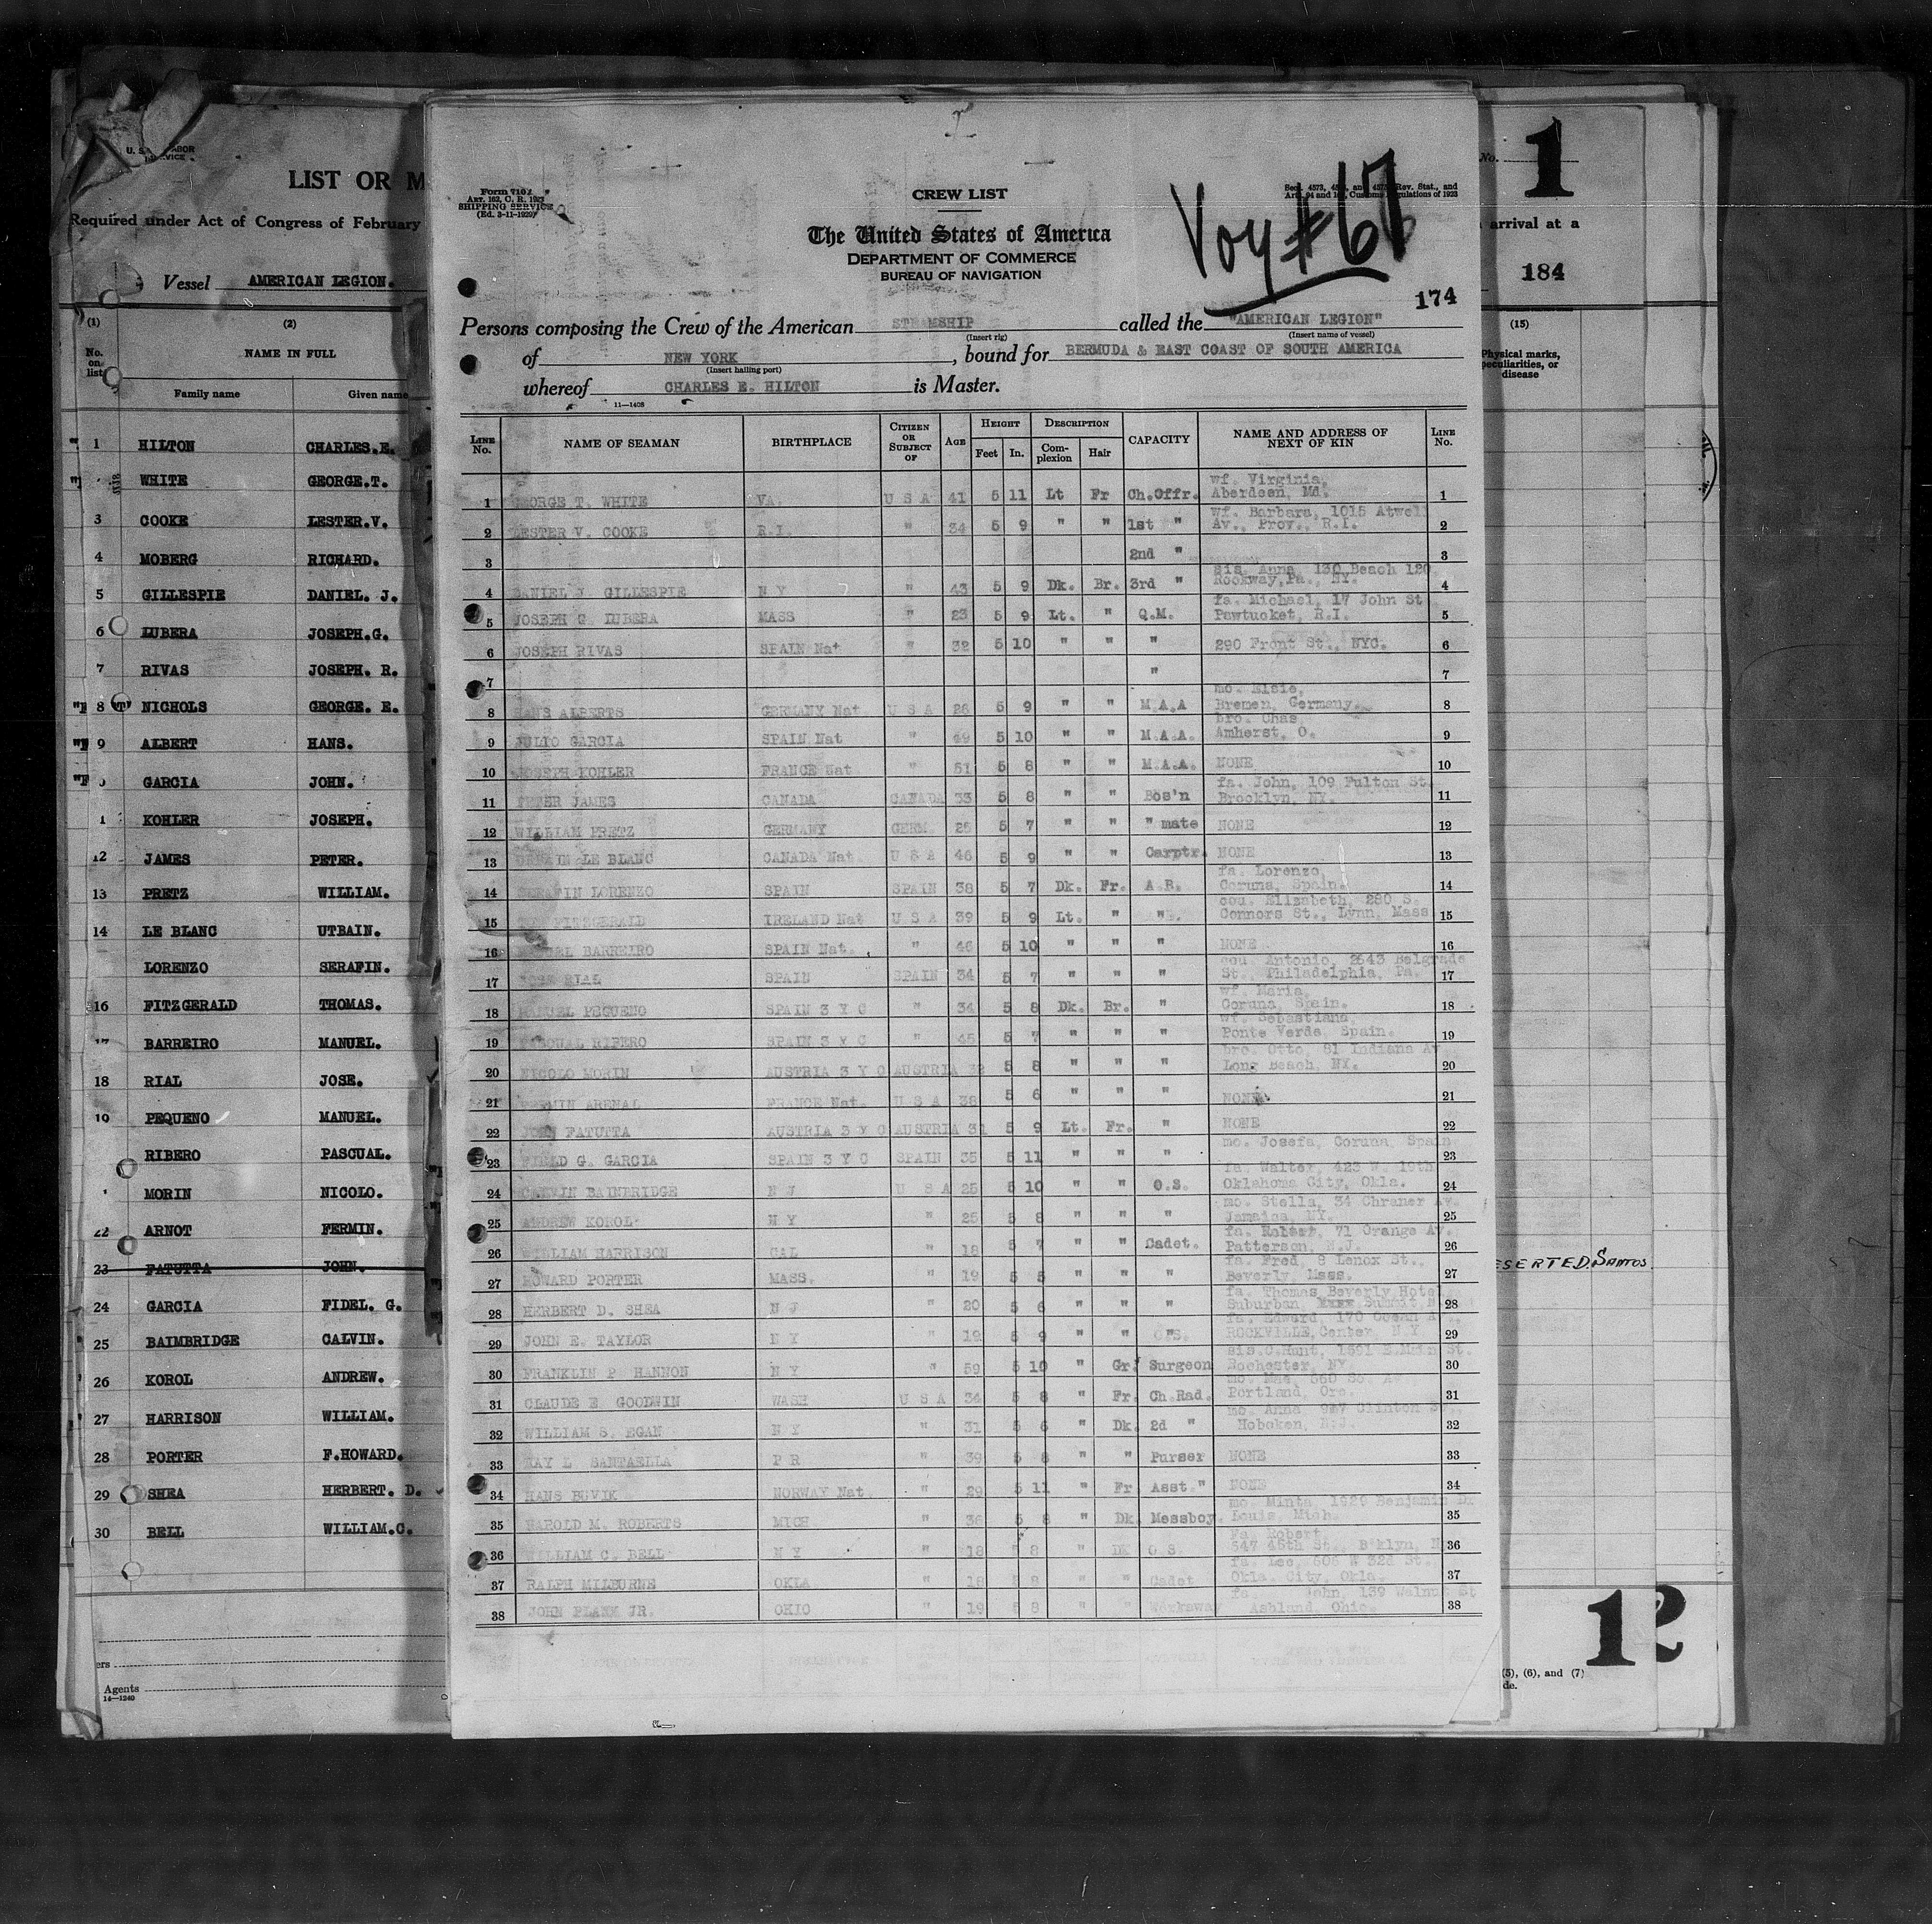 LIST OR M
Required under Act of Congress of February
Vessel AMERICAN LEGION.
(1) (2)
No. on list NAME IN FULL
Family name Given name
1 HILTON CHARLES.E.
WHITE GEORGE.T.
3 COOKE LESTER.V.
4 MOBERG RICHARD.
5 GILLESPIE DANIEL. J.
6 LUBERA JOSEPH.G.
7 RIVAS JOSEPH. R.
8 NICHOLS GEORGE. E.
9 ALBERT HANS.
GARCIA JOHN.
1 KOHLER JOSEPH.
12 JAMES PETER.
13 PRETZ WILLIAM.
14 LE BLANC UTBAIN.
LORENZO SERAFIN.
16 FITZGERALD THOMAS.
17 BARREIRO MANUEL.
18 RIAL JOSE.
19 PEQUENO MANUEL.
RIBERO PASCUAL.
MORIN NICOLO.
22 ARNOT FERMIN.
23 FATUTTA JOHN.
24 GARCIA FIDEL. G.
25 BAIMBRIDGE CALVIN.
26 KOROL ANDREW.
27 HARRISON WILLIAM.
28 PORTER F.HOWARD.
29 SHEA HERBERT. D.
30 BELL WILLIAM.C.
Agents
14—1240
Form 710
ART. 162, C. R. 1923
SHIPPING SERVICE
(Ed. 3-11-1929)
CREW LIST
The United States of America
DEPARTMENT OF COMMERCE
BUREAU OF NAVIGATION
Voy #67
174
Persons composing the Crew of the American STEAMSHIP called the "AMERICAN LEGION"
(Insert rig) (Insert name of vessel)
of NEW YORK, bound for BERMUDA & EAST COAST OF SOUTH AMERICA
(Insert hailing port)
whereof CHARLES E. HILTON is Master.
11—1408
LINE No. NAME OF SEAMAN BIRTHPLACE CITIZEN OR SUBJECT OF AGE HEIGHT Feet In. DESCRIPTION Complexion Hair CAPACITY NAME AND ADDRESS OF NEXT OF KIN LINE No.
1 GEORGE T. WHITE VA. U S A 41 5 11 Lt Fr Ch.Offr. wf. Virginia, Aberdeen, Md. 1
2 LESTER V. COOKE R.I. " 34 5 9 " " 1st " wf. Barbara, 1015 Atwel Av., Prov., R.I. 2
3 2nd " 3
4 DANIEL J. GILLESPIE N Y " 43 5 9 Dk. Br. 3rd " sis. Anna, 130 Beach 120, Rockway,Pa., NY. 4
5 JOSEPH G. LUBERA MASS " 23 5 9 Lt. " Q.M. fa. Michael, 17 John St Pawtucket, R.I. 5
6 JOSEPH RIVAS SPAIN Nat " 32 5 10 " " " 290 Front St., NYC. 6
7 " 7
8 HANS ALBERTS GERMANY Nat. U S A 28 5 9 " " M.A.A mo. Elsie, Bremen, Germany. 8
9 JULIO GARCIA SPAIN Nat " 49 5 10 " " M.A.A. bro. Chas. Amherst, O. 9
10 JOSEPH KOHLER FRANCE Nat " 51 5 8 " " M.A.A. NONE 10
11 PETER JAMES CANADA CANADA 33 5 8 " " Bos'n fa. John, 109 Fulton St. Brooklyn, NY. 11
12 WILLIAM PRETZ GERMANY GERM. 25 5 7 " " " mate NONE 12
13 LE BLANC CANADA Nat U S A 46 5 9 " " Carptr. NONE 13
14 SERAFIN LORENZO SPAIN SPAIN 38 5 7 Dk. Fr. A.B. fa. Lorenzo, Coruna, Spain. 14
15 FITZGERALD IRELAND Nat U S A 39 5 9 Lt. " " cou. Elizabeth, 280 S. Connors St., Lynn, Mass 15
16 MANUEL BARREIRO SPAIN Nat. " 46 5 10 " " " NONE 16
17 JOSE RIAL SPAIN SPAIN 34 5 7 " " " cou. Antonio, 2643 Belgrade St., Philadelphia, Pa. 17
18 MANUEL PEQUENO SPAIN 3 Y C " 34 5 8 Dk. Br. " wf. Maria, Coruna, Spain. 18
19 PASQUAL RIBERO SPAIN 3 Y C " 45 5 7 " " " wf. Sebastiana, Ponte Verda, Spain. 19
20 NICOLO MORIN AUSTRIA 3 Y C AUSTRIA 5 8 " " " bro. Otto, 81 Indiana Av Long Beach, NY. 20
21 FERMIN ARENAL FRANCE Nat. U S A 38 5 6 " " " NONE 21
22 JOHN FATUTTA AUSTRIA 3 Y C AUSTRIA 31 5 9 Lt. Fr. " NONE 22
23 FIELD G. GARCIA SPAIN 3 Y C SPAIN 35 5 11 " " " mo. Josefa, Coruna, Spain 23
24 BAINBRIDGE N J U S A 25 5 10 " " O.S. fa. Walter, 423 W. 19th Oklahoma City, Okla. 24
25 ANDREW KOROL N Y " 25 5 8 " " " mo. Stella, 34 Chraner Av. Jamaica, NY. 25
26 WILLIAM HARRISON CAL " 18 5 7 " " Cadet. fa. Robert, 71 Orange Av. Patterson, N.J. 26
27 HOWARD PORTER MASS. " 19 5 5 " " " fa. Fred, 8 Lenox St., Beverly, Mass. 27
28 HERBERT D. SHEA N J " 20 5 6 " " " fa. Thomas Beverly Hotel Suburban, Summit 28
29 JOHN E. TAYLOR N Y " 19 5 9 " " O.S. fa. Edward, 170 Ocean A ROCKVILLE, Center, N Y 29
30 FRANKLIN P HANNON N Y " 59 5 10 " Gr. Surgeon sis.C.Hunt, 1551 E.Main St. Rochester, NY. 30
31 CLAUDE E. GOODWIN WASH U S A 34 5 8 " Fr. Ch.Rad. mo. Mae, Portland, Ore. 31
32 WILLIAM S. EGAN N Y " 31 5 6 " Dk. 2d " mo. Anna 927 Clinton Hoboken, N.J. 32
33 RAY L SANTAELLA P R " 39 5 8 " " Purser NONE 33
34 HANS BUVIK NORWAY Nat " 29 5 11 " Fr Asst." NONE 34
35 HAROLD M. ROBERTS MICH " 36 5 8 " Dk Messboy. mo. Minta, 1929 Benjamin Louis, Mich. 35
36 WILLIAM C. BELL N Y " 18 5 8 " Dk O.S. Fa. Robert, 547 46th St., B'klyn, N 36
37 RALPH MILBURNE OKLA " 18 5 8 " " Cadet fa. Lee, 606 W 32d St. Okla. City, Okla. 37
38 JOHN PLANK JR. OHIO " 19 5 8 " " Workaway fa. John, 139 Walnut St Ashland, Ohio. 38
No. 1
arrival at a
184
(15)
Physical marks, peculiarities, or disease
ESERTED. SANTOS
12
(5), (6), and (7)
de.